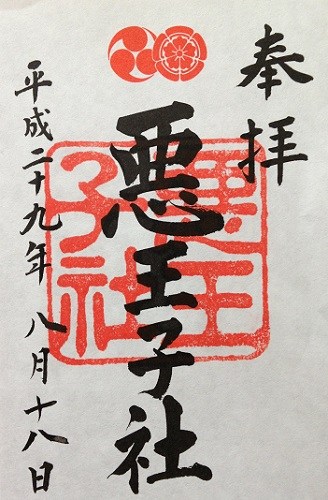 奉拝
悪王子社
平成二十九年八月十八日
悪王子社